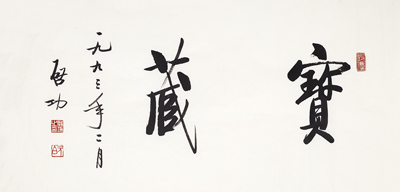 寶藏
一九九三年二月
啓功